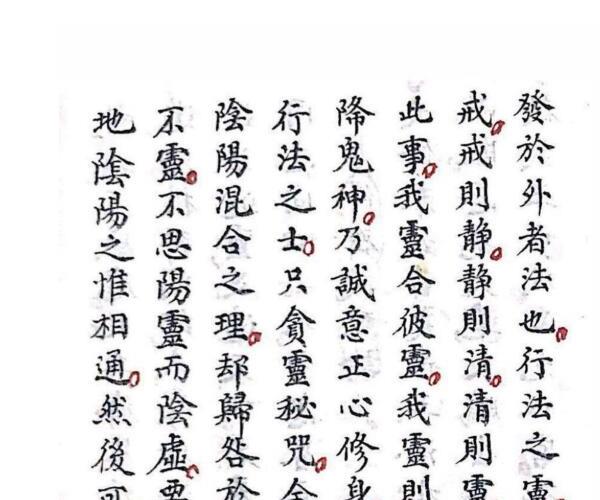 發於外者法也行法之靈
戒戒則静静則清清則靈
此事我靈合彼靈我靈則
降鬼神乃誠意正心修身
行法之士只貪靈秘咒全
陰陽混合之理却歸咎於
不靈不思陽靈而陰虛要
地陰陽之惟相通然後可